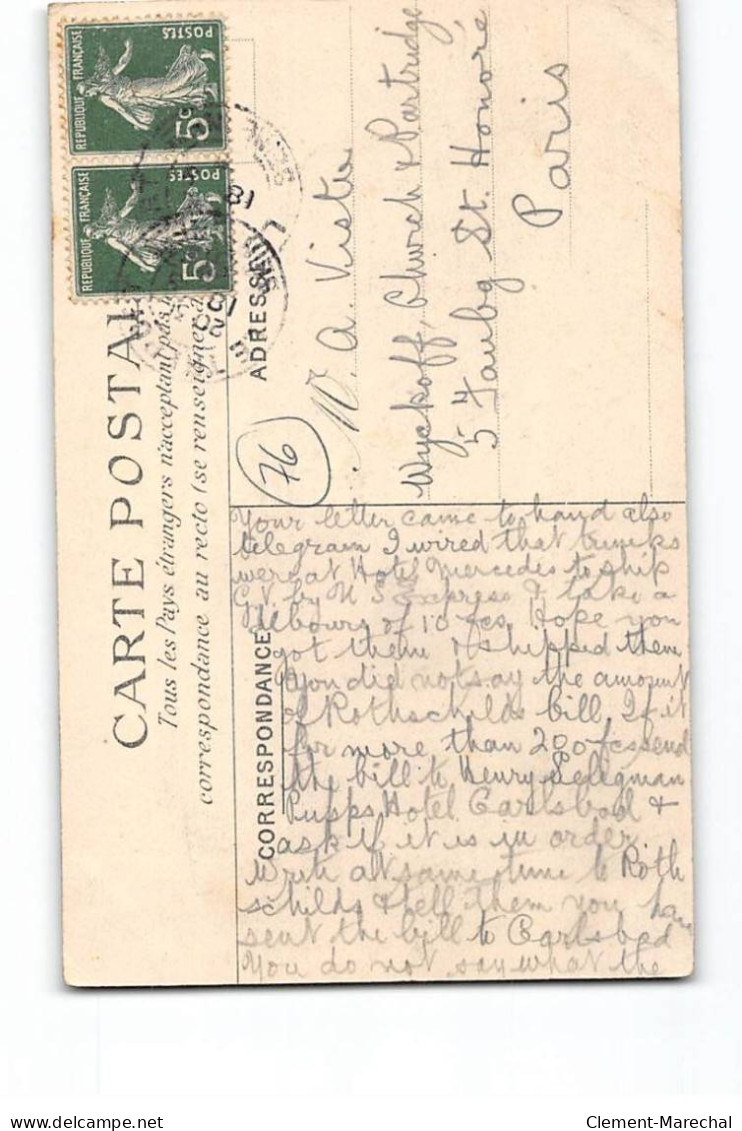 RÉPUBLIQUE FRANÇAISE
POSTES
5c
RÉPUBLIQUE FRANÇAISE
POSTES
5c
CARTE POSTALE
Tous les Pays étrangers n'acceptant pas
correspondance au recto (se renseigner à
ADRESSE
CORRESPONDANCE
M. A. Viste
Wyckoff, Church & Partridge
5 Faubg St. Honoré
Paris
76
Your letter came to hand also
telegram I wired that trunks
were at Hotel Mercedes to ship
G.V. by U S Express & take a
debours of 10 fcs. Hope you
got them & shipped them
You did not say the amount
of Rothschilds bill, If it
for more than 200 fcs send
the bill to Henry Seligman
Pupps Hotel Carlsbad &
ask if it is in order
Write at same time to Roth
schilds & tell them you have
sent the bill to Carlsbad
You do not say what the
Clement-Marechal